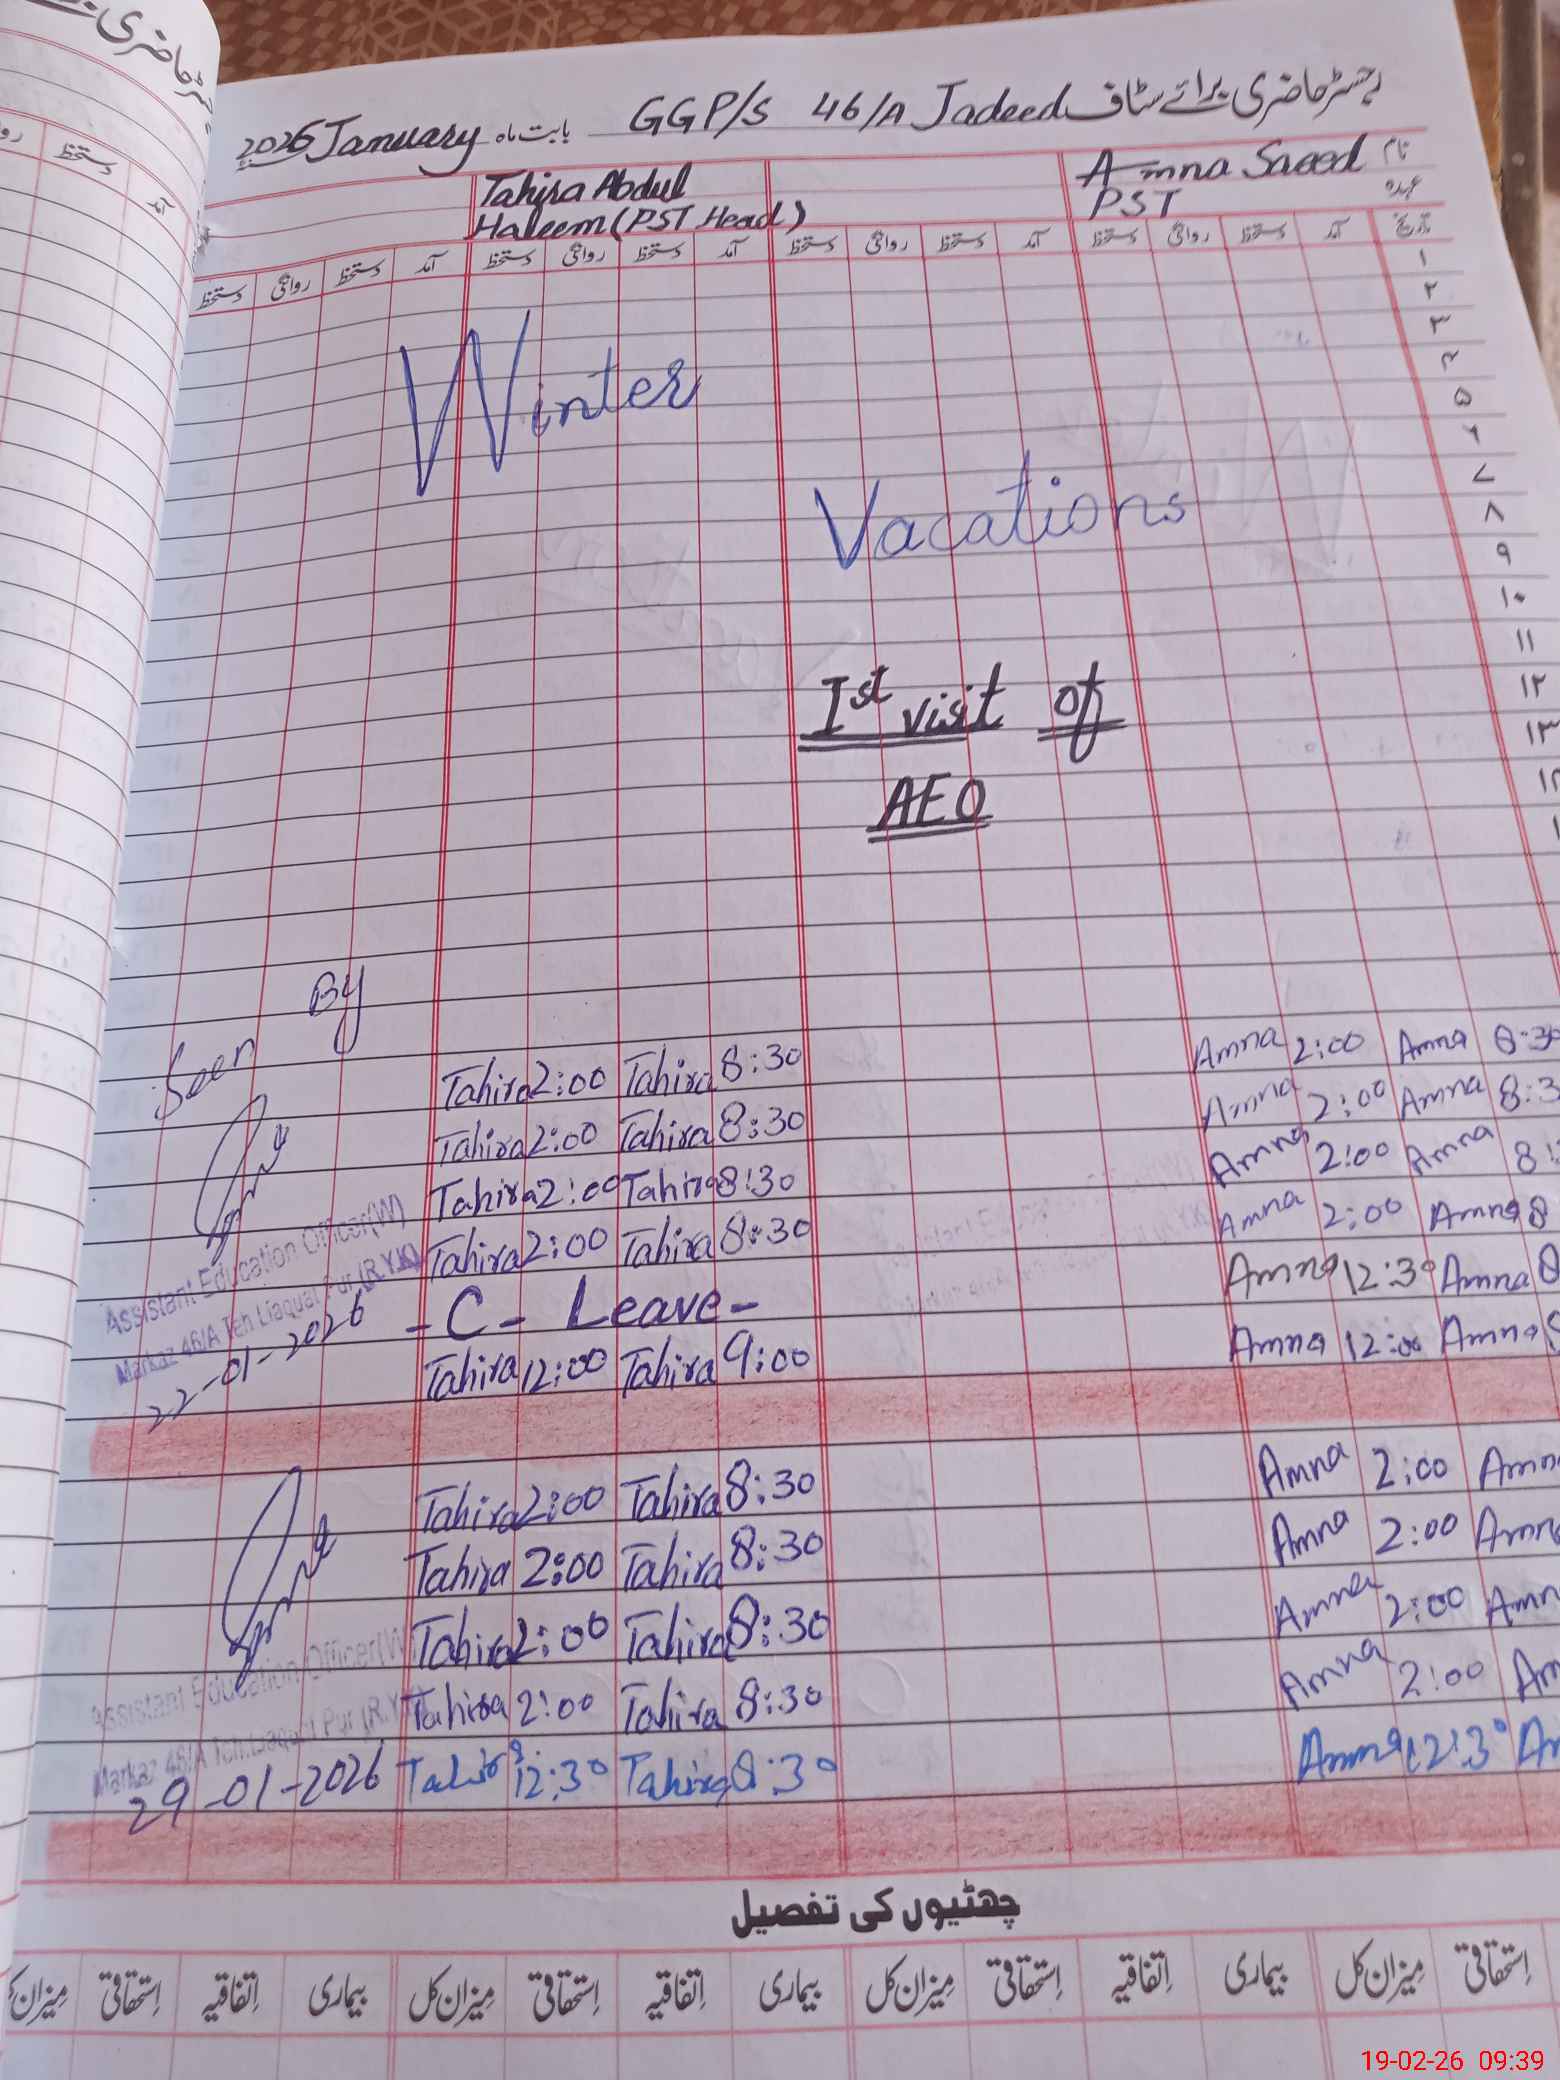 رجسٹر حاضری برائے سٹاف GGP/S 46/A Jadeed بابت ماہ January 2026
نام Amna Saeed Tahira Abdul
عہدہ PST Haleem (PST Head)
تاریخ آمد دستخط روانگی دستخط آمد دستخط روانگی دستخط آمد دستخط روانگی دستخط آمد دستخط روانگی دستخط
۱
۲
۳
۴
۵
۶
۷
۸
۹
۱۰
۱۱
۱۲
۱۳
Winter
Vacations
Ist visit of
AEO
Seen By
Tahira 2:00 Tahira 8:30 Amna 2:00 Amna 8:30
Tahira 2:00 Tahira 8:30 Amna 2:00 Amna 8:3
Tahira 2:00 Tahira 8:30 Amna 2:00 Amna 8:
Tahira 2:00 Tahira 8:30 Amna 2:00 Amna 8
Assistant Education Officer(W)
Markaz 46/A Teh Liaquat Pur (R.Y.K)
22-01-2026
- C - Leave - Amna 12:30 Amna 8
Tahira 12:00 Tahira 9:00 Amna 12:00 Amna
Tahira 2:00 Tahira 8:30 Amna 2:00 Amn
Tahira 2:00 Tahira 8:30 Amna 2:00 Amn
Tahira 2:00 Tahira 8:30 Amna 2:00 Amn
Tahira 2:00 Tahira 8:30 Amna 2:00 Am
Assistant Education Officer(W)
Markaz 46/A Teh Liaquat Pur (R.Y.K)
29-01-2026
Tahira 12:30 Tahira 8:30 Amna 12:30 Am
چھٹیوں کی تفصیل
اِستحقاقی میزان کل بیماری اِتفاقیہ اِستحقاقی میزان کل بیماری اِتفاقیہ اِستحقاقی میزان کل بیماری اِتفاقیہ اِستحقاقی میزان
19-02-26 09:39